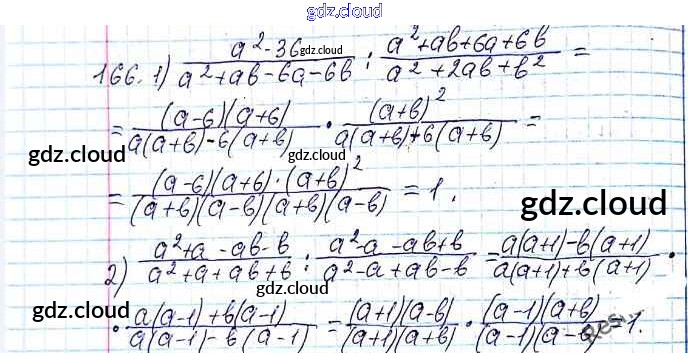 gdz.cloud
166. 1) (a² - 36)/(a² + ab - 6a - 6b) : (a² + ab + 6a + 6b)/(a² + 2ab + b²) =
= (a-6)(a+6)/(a(a+b) - 6(a+b)) · (a+b)²/(a(a+b) + 6(a+b)) =
gdz.cloud gdz.cloud gdz.cloud
= (a-6)(a+6)·(a+b)²/((a+b)(a-6)(a+b)(a-6)) = 1.
gdz.cloud
2) (a² + a - ab - b)/(a² + a + ab + b) : (a² - a - ab + b)/(a² - a + ab - b) = (a(a+1) - b(a+1))/(a(a+1) + b(a+1)) ·
gdz.cloud gdz.cloud gdz.cloud
· (a(a-1) + b(a-1))/(a(a-1) - b(a-1)) = (a+1)(a-b)/((a+1)(a+b)) · (a-1)(a+b)/((a-1)(a-b)) = 1.